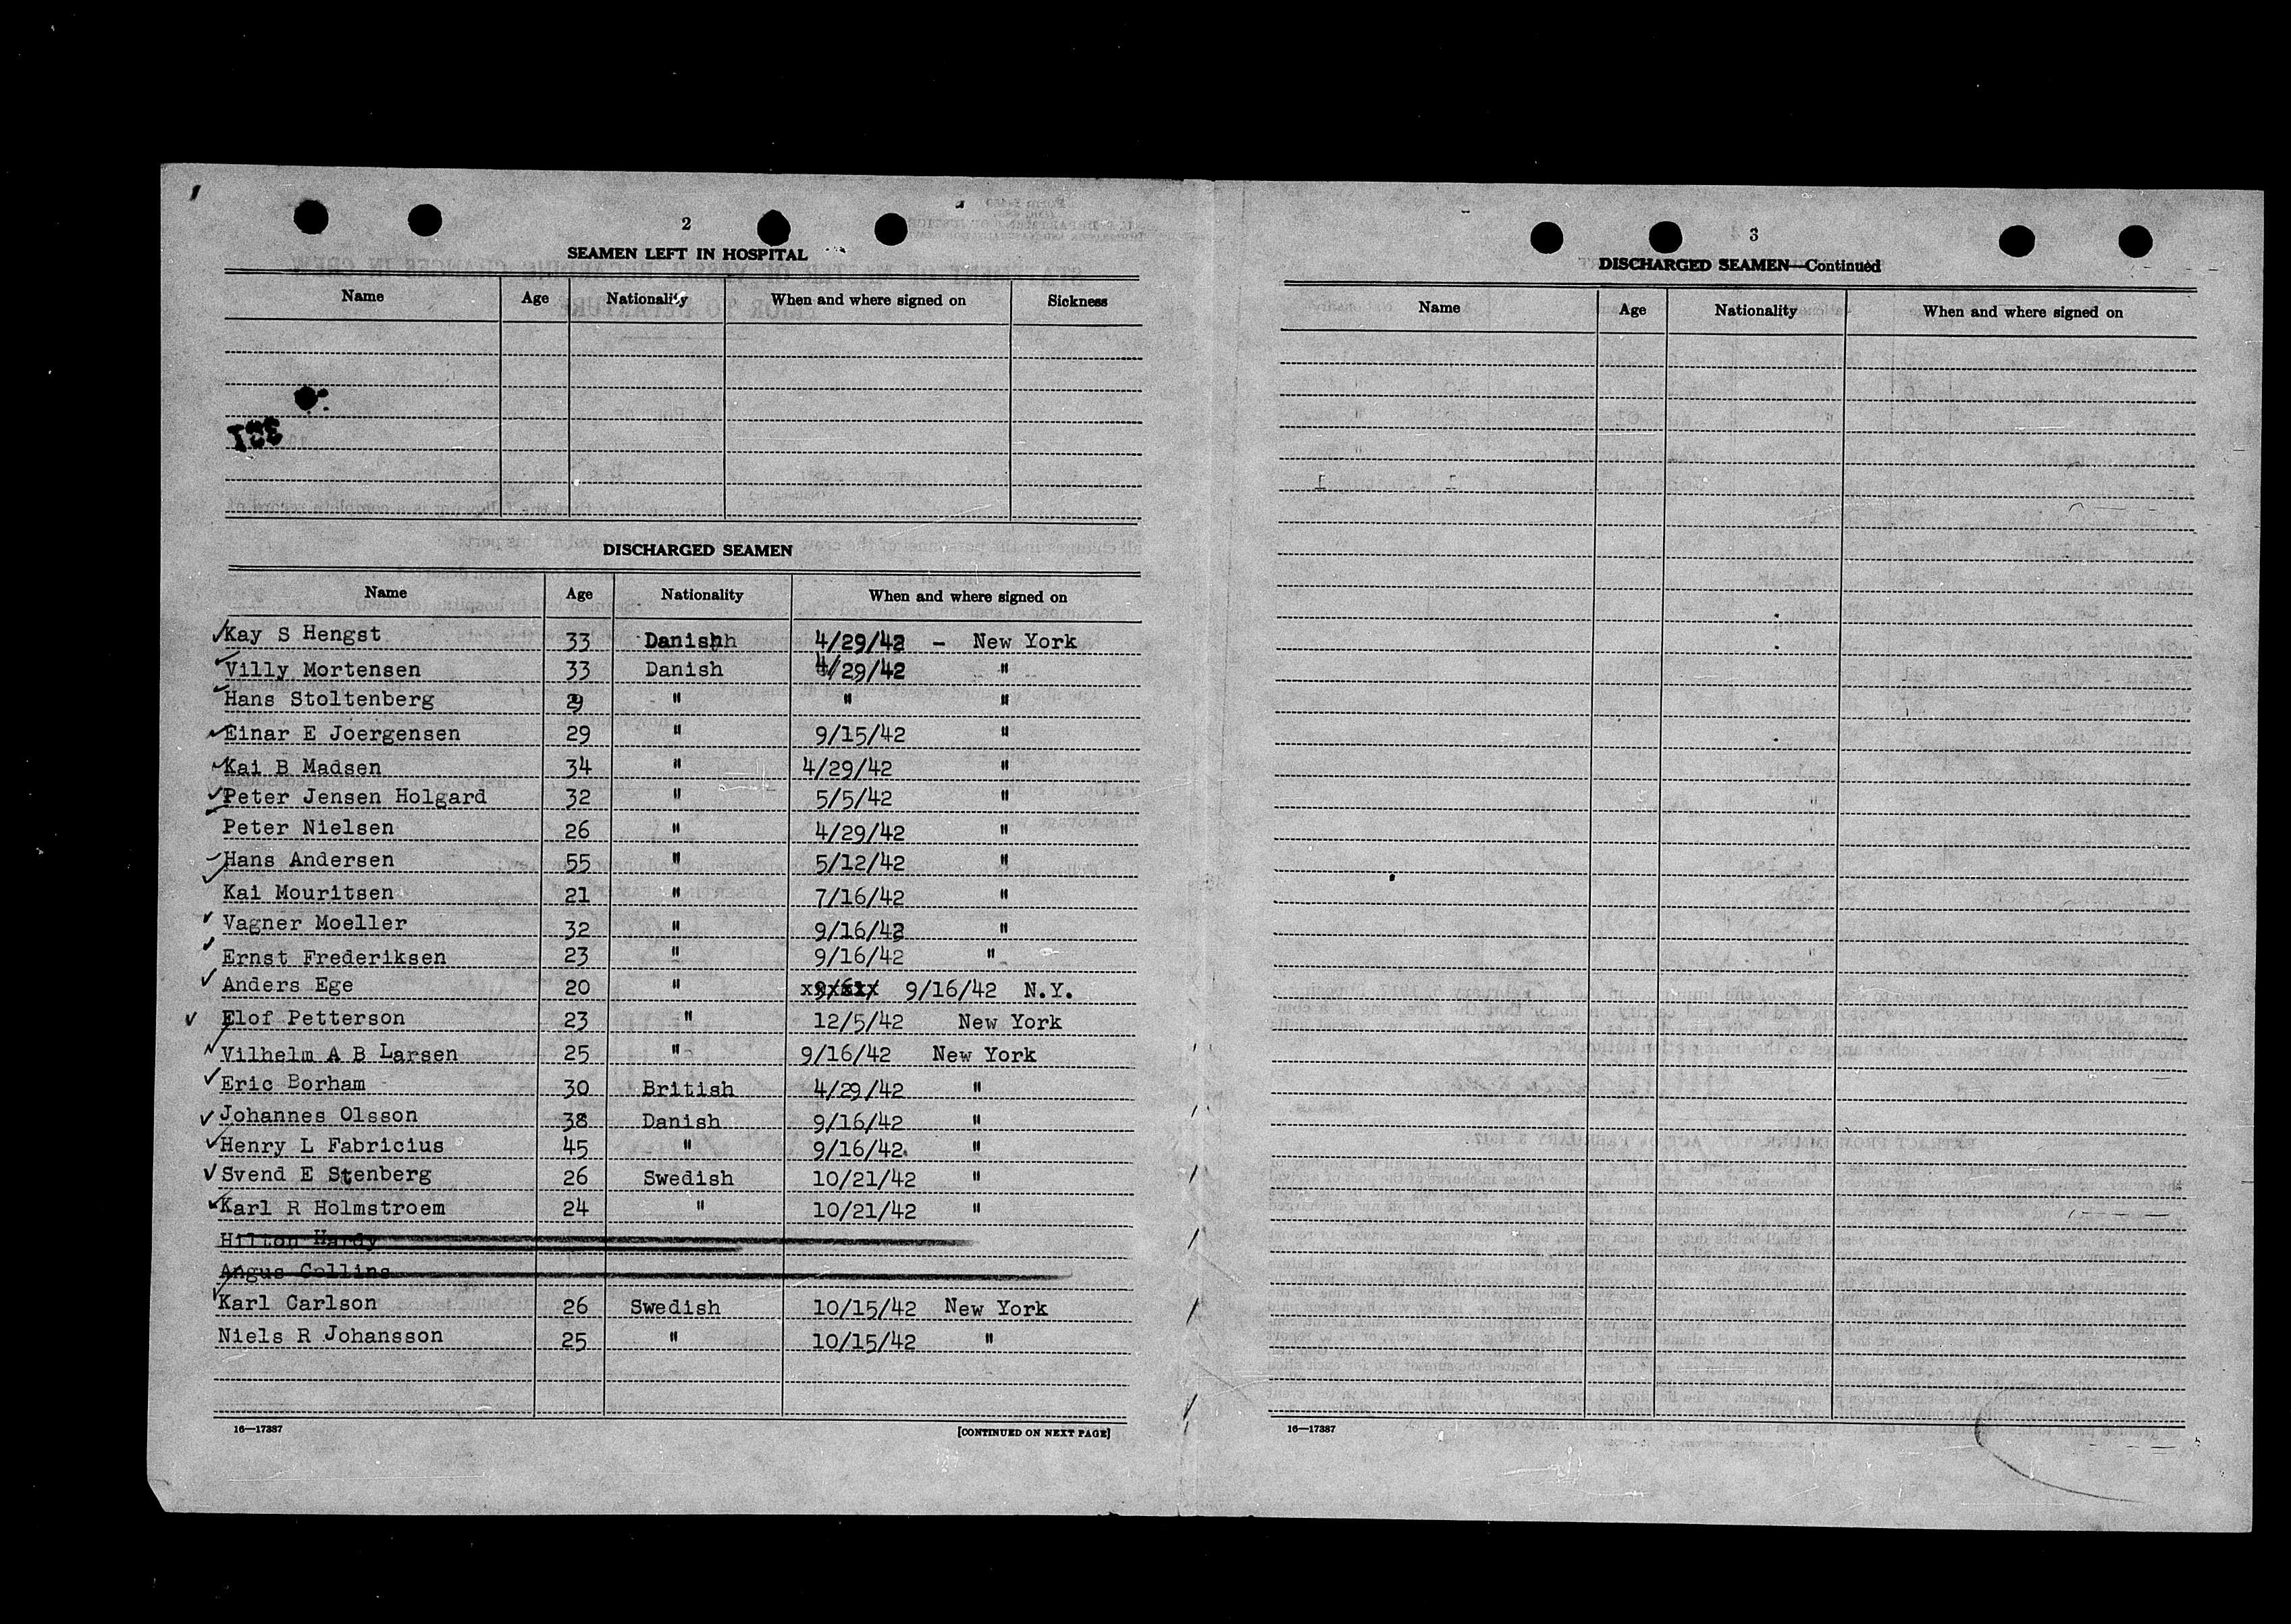 2
SEAMEN LEFT IN HOSPITAL
Name Age Nationality When and where signed on Sickness
DISCHARGED SEAMEN
Name Age Nationality When and where signed on
Kay S Hengst 33 Danishh 4/29/42 – New York
Villy Mortensen 33 Danish 4/29/42 "
Hans Stoltenberg 29 " " "
Einar E Joergensen 29 " 9/15/42 "
Kai B Madsen 34 " 4/29/42 "
Peter Jensen Holgard 32 " 5/5/42 "
Peter Nielsen 26 " 4/29/42 "
Hans Andersen 55 " 5/12/42 "
Kai Mouritsen 21 " 7/16/42 "
Vagner Moeller 32 " 9/16/42 "
Ernst Frederiksen 23 " 9/16/42 "
Anders Ege 20 " 9/16/42 N.Y.
Elof Petterson 23 " 12/5/42 New York
Vilhelm A B Larsen 25 " 9/16/42 New York
Eric Borham 30 British 4/29/42 "
Johannes Olsson 38 Danish 9/16/42 "
Henry L Fabricius 45 " 9/16/42 "
Svend E Stenberg 26 Swedish 10/21/42 "
Karl R Holmstroem 24 " 10/21/42 "
Hilton Hardy
Angus Collins
Karl Carlson 26 Swedish 10/15/42 New York
Niels R Johansson 25 " 10/15/42 "
16—17387
[CONTINUED ON NEXT PAGE]
3
DISCHARGED SEAMEN—Continued
Name Age Nationality When and where signed on
16—17387